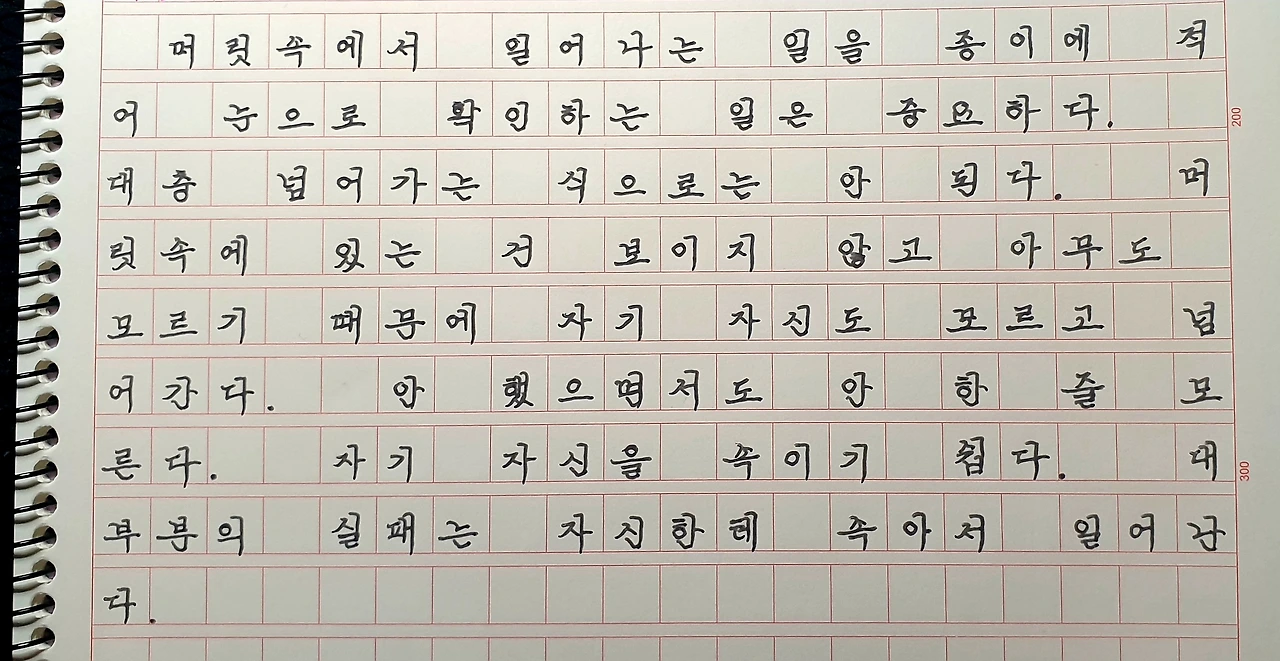 머릿속에서 일어나는 일을 종이에 적
어 눈으로 확인하는 일은 중요하다.
200
대충 넘어가는 식으로는 안 된다. 머
릿속에 있는 건 보이지 않고 아무도
모르기 때문에 자기 자신도 모르고 넘
어간다. 안 했으면서도 안 한 줄 모
른다. 자기 자신을 속이기 쉽다. 대
300
부분의 실패는 자신한테 속아서 일어난
다.